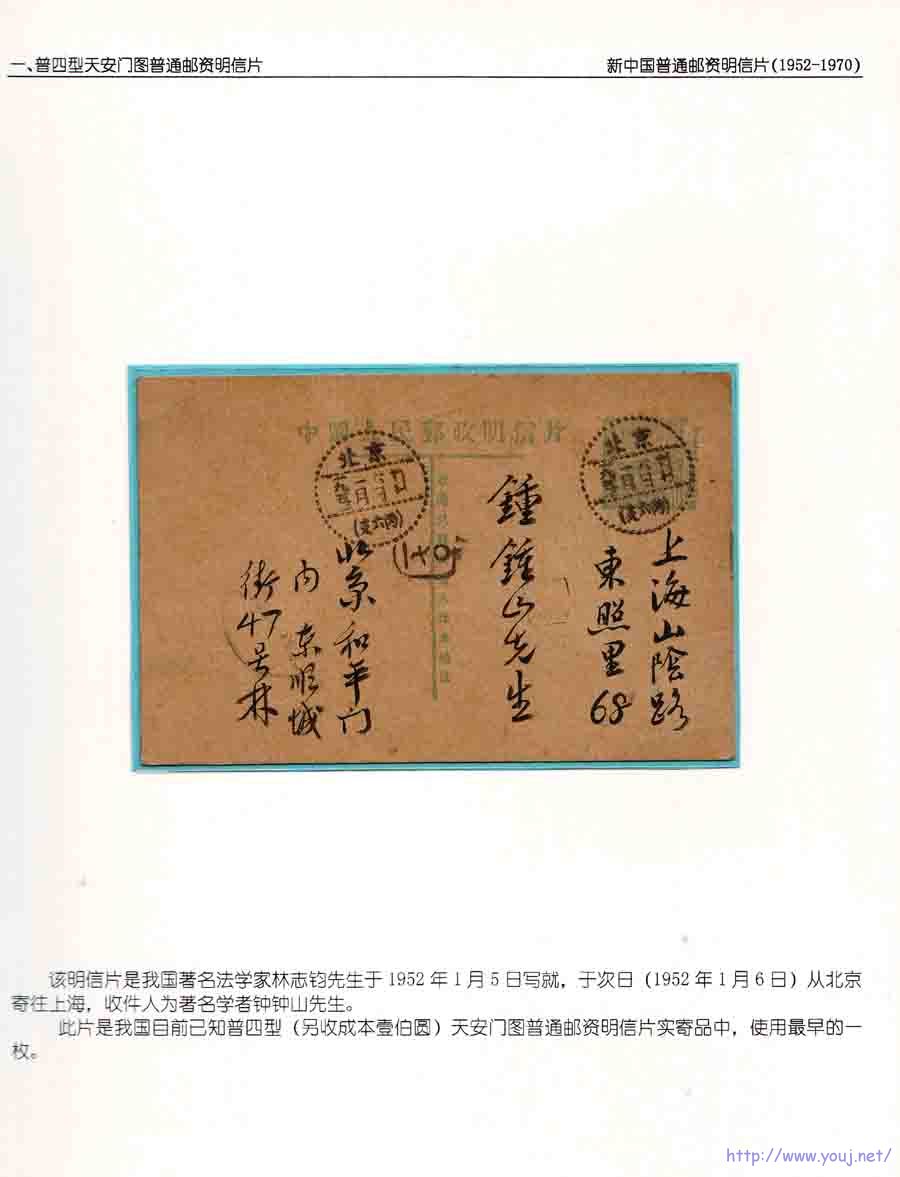 一、普四型天安门图普通邮资明信片
新中国普通邮资明信片(1952-1970)
中国人民邮政明信片
北京
(支六內)
北京
(支六內)
上海山陰路
東照里
68
鍾鍾山先生
北京和平门
内 东顺城
街47号林
该明信片是我国著名法学家林志钧先生于 1952 年 1 月 5 日写就，于次日（1952 年 1 月 6 日）从北京
寄往上海，收件人为著名学者钟钟山先生。
此片是我国目前已知普四型（另收成本壹伯圆）天安门图普通邮资明信片实寄品中，使用最早的一
枚。
http://www.youj.net/